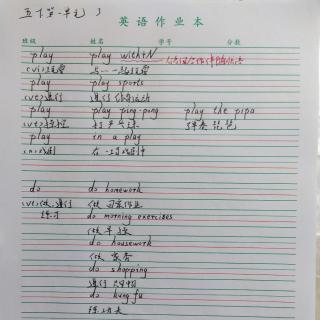 五下第一单元
英语作业本
班级 姓名 学号 分数
play play with+N
(vi)玩耍 与……一起玩耍
play play sports
(v)进行 进行体育运动
play play ping-pong play the pipa
打乒乓球 弹奏琵琶
play in a play
(n)戏剧 在一场戏剧中
do do homework
(v)做,进行 做家庭作业
练习 do morning exercises
做早操
do housework
做家务
do shopping
进行购物
do kung fu
练功夫